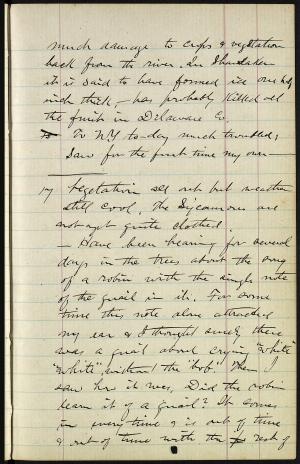 much damage to crops & vegetation
back from the river. In Shandaken
it is said to have formed ice one half
inch thick, – has probably killed all
the fruit in Delaware Co.
To N.Y. to-day much troubled;
saw for the first time my own
17 Vegetation all out but weather
still cool. The Sycamores are
not yet quite clothed.
– Have been hearing for several
days in the trees about the song
of a robin with the single note
of the quail in it. For some
time this note alone attracted
my ear & I thought surely there
was a quail about crying "white"
"white", without the "bob". Then I
saw how it was. Did the robin
learn it of a quail? It comes
in every time & is out of time
& out of tune with the rest of